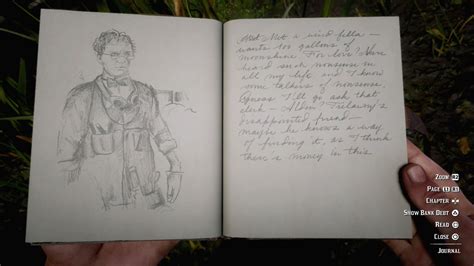 Met Met a weird fella —
wants 100 gallons of
moonshine. For love? Never
heard such nonsense in
all my life and I know
some talkers of nonsense.
Guess I'll go ask that
clerk — Alden? Trelawny's
disappointed friend —
maybe he knows a way
of finding it, as I think
there is money in this
ZOOM R2
PAGE L1 R1
CHAPTER
SHOW BANK DEBT
READ
CLOSE
JOURNAL